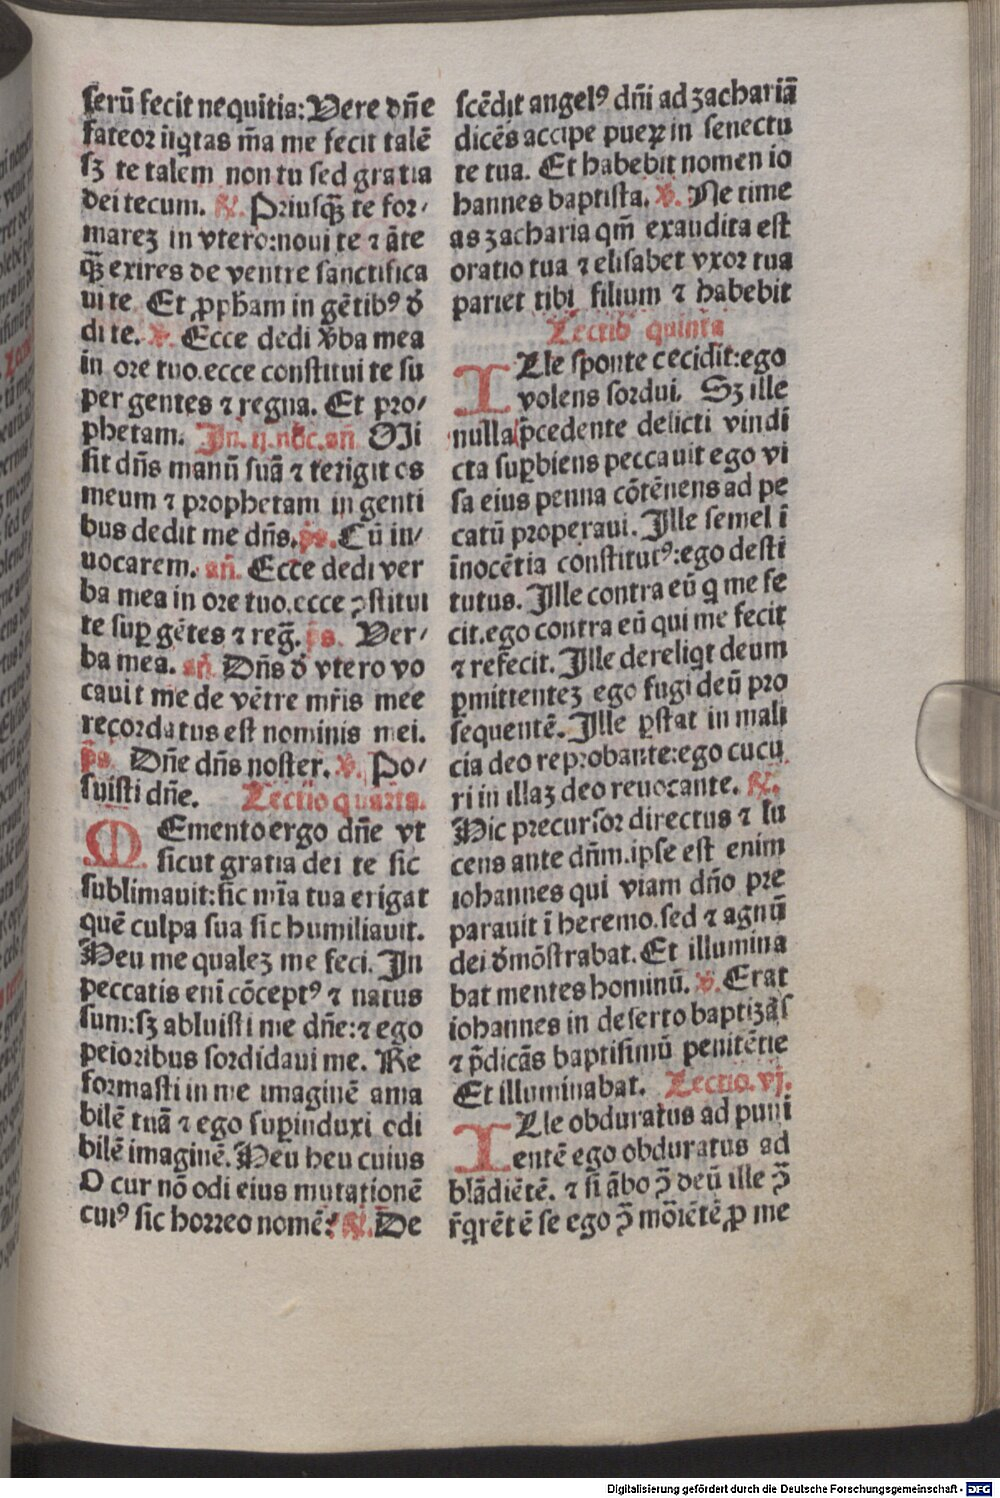 serū fecit neqͥtia: Vere dn̄e
fateor iiqͥtas m̄a me fecit talē
sꝫ te talem non tu sed gratia
dei tecum. ℟. Priusqꝫ̄ te for⸗
mareꝫ in vtero: noui te ⁊ āte
qꝫ̄ exires de ventre sanctifica
ui te. Et ꝓph̄am in gētibꝰ d̄
di te. ℣. Ecce dedi v̄ba mea
in ore tuo. ecce constitui te su
per gentes ⁊ regna. Et pro⸗
phetam. In. ij. noc. an̄. Mi
sit dn̄s manū suā ⁊ tetigit os
meum ⁊ prophetam in genti
bus dedit me dn̄s. ps. Cū in⸗
uocarem. an̄. Ecce dedi ver
ba mea in ore tuo. ecce ꝯstitui
te suꝑ gētes ⁊ reḡ. ps. Ver⸗
ba mea. an̄. Dn̄s d̄ vtero vo
cauit me de vētre mr̄is mee
recordatus est nominis mei.
ps. Dn̄e dn̄s noster. ℣. Po⸗
suisti dn̄e. Lectio quarta.
Memento ergo dn̄e vt
sicut gratia dei te sic
sublimauit: sic mīa tua erigat
quē culpa sua sic humiliauit.
Heu me qualeꝫ me feci. In
peccatis eni cōceptꝰ ⁊ natus
sum: sꝫ abluisti me dn̄e: ⁊ ego
peioribus sordidaui me. Re
formasti in me imaginē ama
bilē tuā ⁊ ego suꝑinduxi odi
bilē imaginē. Heu heu cuius
O cur nō odi eius mutationē
cuiꝰ sic horreo nomē? ℟. De
scēdit angelꝰ dn̄i ad zachariā
dicēs accipe pueꝝ in senectu
te tua. Et habebit nomen io
hannes baptista. ℣. Ne time
as zacharia qm̄ exaudita est
oratio tua ⁊ elisabet vxor tua
pariet tibi filium ⁊ habebit
Lectio quinta
Ille sponte cecidit: ego
volens sordui. Sꝫ ille
nulla p̄cedente delicti vindi
cta suꝑbiens peccauit ego vi
sa eius penna cōtēnens ad pe
catū properaui. Ille semel ī
īnocētia constitutꝰ: ego desti
tutus. Ille contra eū q me fe
cit. ego contra eū qui me fecit
⁊ refecit. Ille dereliqͥt deum
ꝑmittenteꝫ ego fugi deū pro
sequentē. Ille ꝑstat in mali
cia deo reprobante: ego cucu
ri in illaꝫ deo reuocante. ℟.
Hic precursor directus ⁊ lu
cens ante dn̄m. ipse est enim
iohannes qui viam dn̄o pre
parauit ī heremo. sed ⁊ agnū
dei d̄mōstrabat. Et illumina
bat mentes hominū. ℣. Erat
iohannes in deserto baptizās
⁊ p̄dicās baptismū penitētie
Et illuminabat. Lectio. vj.
Ille obduratus ad puni
entē ego obduratus ad
blādiētē. ⁊ si ābo ꝯ̄ deū ille ꝯ̄
r̄qͥrētē se ego ꝯ̄ moͥiētē ꝓ me
Digitalisierung gefördert durch die Deutsche Forschungsgemeinschaft - DFG